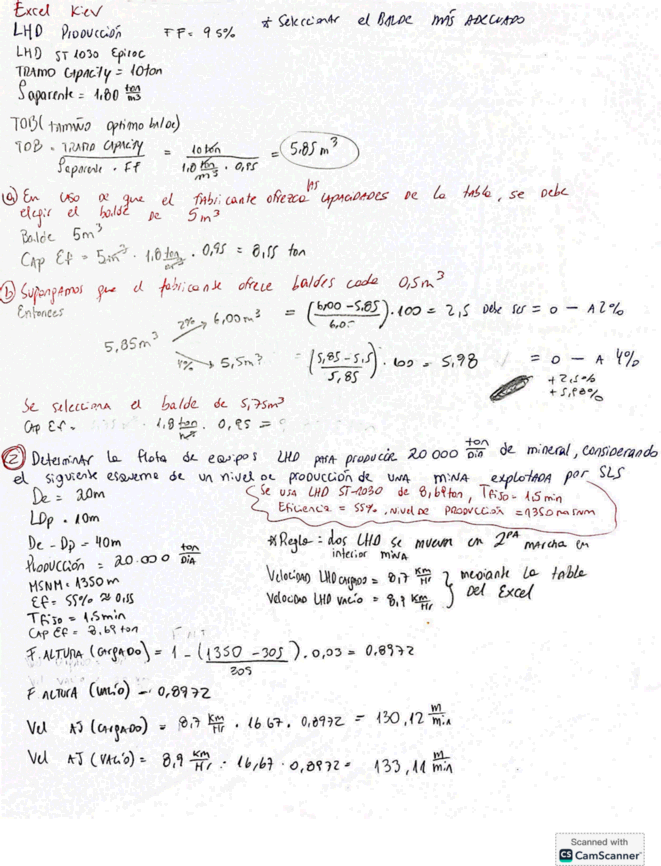 Excel Kiev
LHD Producción FF= 95% * Seleccionar el BALDE MÁS ADECUADO
LHD ST 1030 Epiroc
TRAMO CAPACITY = 10 ton
ρaparente = 1,80 ton/m3
TOB (tamaño optimo balde)
TOB = TRAMO CAPACITY / ρaparente . FF = 10 ton / 1.8 ton/m3 . 0,95 = 5.85 m3
(a) En caso de que el fabricante ofrezca las capacidades de la tabla, se debe
elegir el balde de 5m3
Balde 5m3
Cap Ef = 5m3 . 1.8 ton/m3 . 0,95 = 8,55 ton
(b) Supongamos que el fabricante ofrece baldes cada 0,5m3
Entonces
5,85m3
2% → 6,00m3 = (6,00 - 5.85 / 6,0) . 100 = 2,5 debe ser = 0 - A 2%
4% → 5,5m3 = (5,85 - 5,5 / 5,85) . 100 = 5,98 = 0 - A 4%
+ 2,5%
+ 5,98%
Se selecciona el balde de 5,75m3
Cap Ef = . 1,8 ton/m3 . 0,95 =
(2) Determinar la flota de equipos LHD para producir 20 000 ton/DIA de mineral, considerando
el siguiente esquema de un nivel de producción de una mina explotada por SLS
Se usa LHD ST-1030 de 8,69 ton, Tfijo = 1,5 min
Eficiencia = 55%. Nivel de PRODUCCIÓN = 1350 msnm
De = 20m
LDp = 10m
De - Dp = 40m
Producción = 20.000 ton/DIA
MSNM = 1350 m
Ef = 55% ≈ 0,55
Tfijo = 1,5 min
CAP Ef = 8,69 ton
* Regla: dos LHD se mueven en 2DA marcha en
interior mina
Velocidad LHD cargados = 8,7 Km/Hr
Velocidad LHD vacío = 8,9 Km/Hr
mediante la tabla
del Excel
F. ALTURA (cargado) = 1 - (1350 - 305 / 305) . 0,03 = 0,8972
F ALTURA (vacío) = 0,8972
Vel AJ (cargado) = 8,7 Km/Hr . 16 67 . 0,8972 = 130,12 m/min
Vel AJ (vacío) = 8,9 Km/Hr . 16,67 . 0,8972 = 133,11 m/min
Scanned with
CS CamScanner